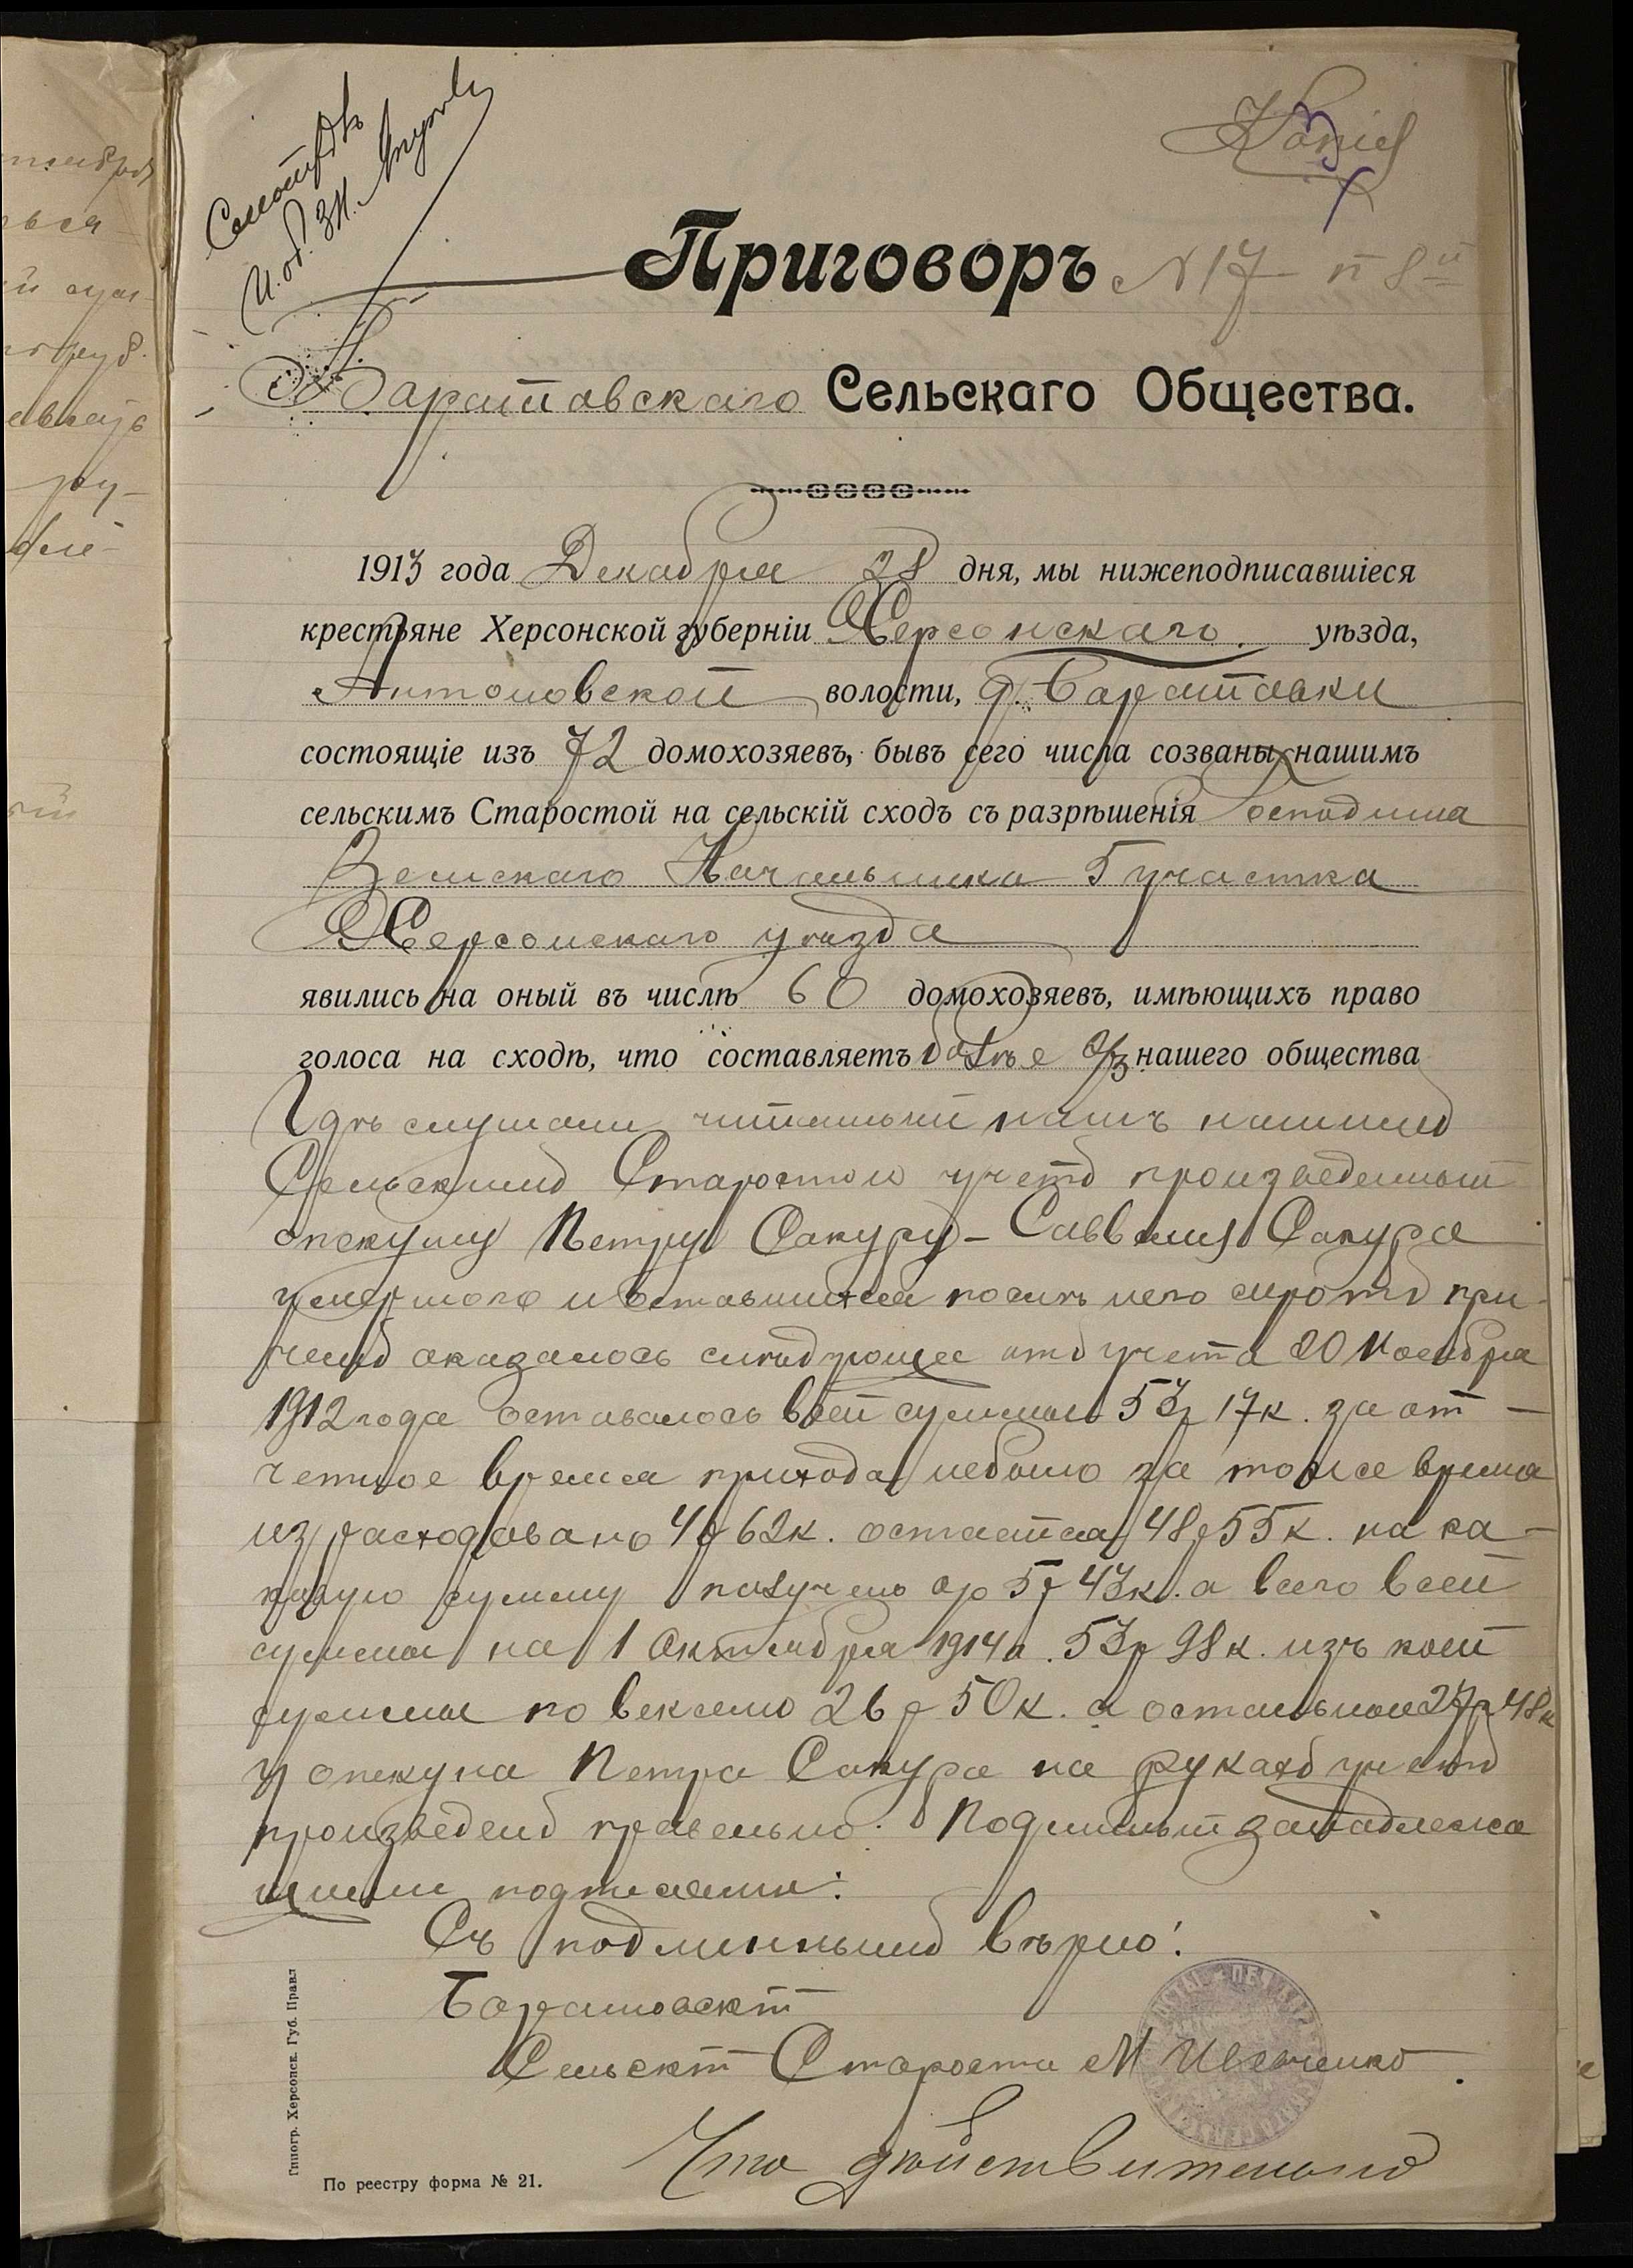 Копія
Приговоръ N 17
Баратавскаго Сельскаго Общества.
1913 года Декабря 28 дня, мы нижеподписавшіеся
крестьяне Херсонской губерніи Херсонскаго уѣзда,
Антоновской волости, д. Баратавки
состоящіе изъ 72 домохозяевъ, бывъ сего числа созваны нашимъ
сельскимъ Старостой на сельскій сходъ съ разрѣшенія Господина
Земскаго Начальника 5 участка
Херсонскаго уѣзда
явились на оный въ числѣ 60 домохозяевъ, имѣющихъ право
голоса на сходѣ, что составляетъ болѣе 2/3 нашего общества
Гдѣ слушали читанный намъ нашимъ
Сельскимъ Старостою учетъ произведенный
опекуну Петру Сакуру - Саввы Сакура
умершого и оставшихся послѣ него сиротъ при-
чемъ оказалось слѣдующее отъ учета 20 Ноября
1912 года оставалось всей суммы 53р 17к. за от-
четное время прихода небыло за тоже время
израсходовано 4р 62к. остается 48р 55к. на ка-
ковую сумму получено % 5р 43к. а всего всей
суммы на 1 Октября 1914 г. 53р 98к. изъ коей
суммы по векселю 26р 50к. а остальные 27р 48к
у опекуна Петра Сакура на рукахъ учетъ
произведенъ правельно. Подлинный занадлежа
щими подписями:
Съ подлиннымъ вѣрно:
Баратовскій
Сельскій Староста М Шевченко
Что действительно
Типогр. Херсонск. Губ. Правл
По реестру форма № 21.